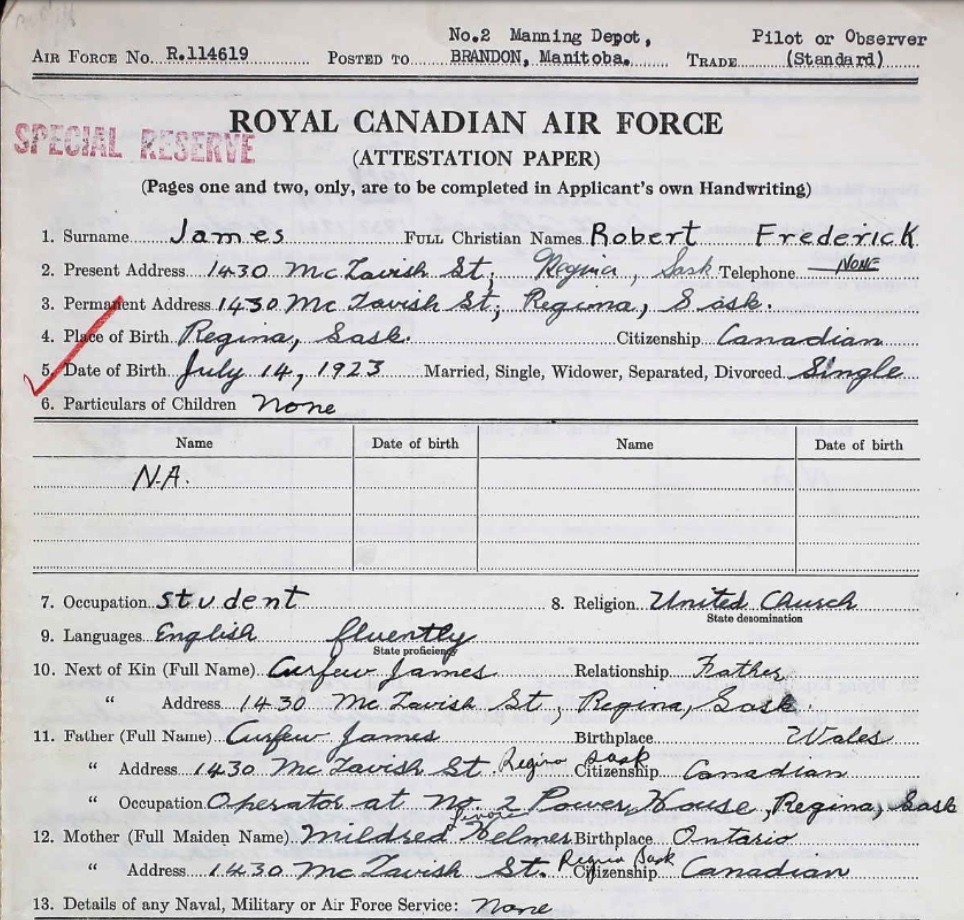 No.2 Manning Depot, Pilot or Observer
AIR FORCE No. R.114619 POSTED TO BRANDON, Manitoba. TRADE (Standard)
ROYAL CANADIAN AIR FORCE
SPECIAL RESERVE
(ATTESTATION PAPER)
(Pages one and two, only, are to be completed in Applicant's own Handwriting)
1. Surname James FULL Christian Names Robert Frederick
2. Present Address 1430 McTavish St; Regina, Sask Telephone NONE
3. Permanent Address 1430 McTavish St; Regina, Sask.
4. Place of Birth Regina, Sask. Citizenship Canadian
5. Date of Birth July 14, 1923 Married, Single, Widower, Separated, Divorced Single
6. Particulars of Children None
Name Date of birth Name Date of birth
N.A.
7. Occupation student 8. Religion United Church
State denomination
9. Languages English fluently
State proficiency
10. Next of Kin (Full Name) Curfew James Relationship Father
" Address 1430 McTavish St, Regina, Sask.
11. Father (Full Name) Curfew James Birthplace Wales
" Address 1430 McTavish St. Regina Sask Citizenship Canadian
" Occupation Operator at No. 2 Power House, Regina, Sask
12. Mother (Full Maiden Name) Mildred Helmer Birthplace Ontario
" Address 1430 McTavish St. Regina Sask Citizenship Canadian
13. Details of any Naval, Military or Air Force Service: None